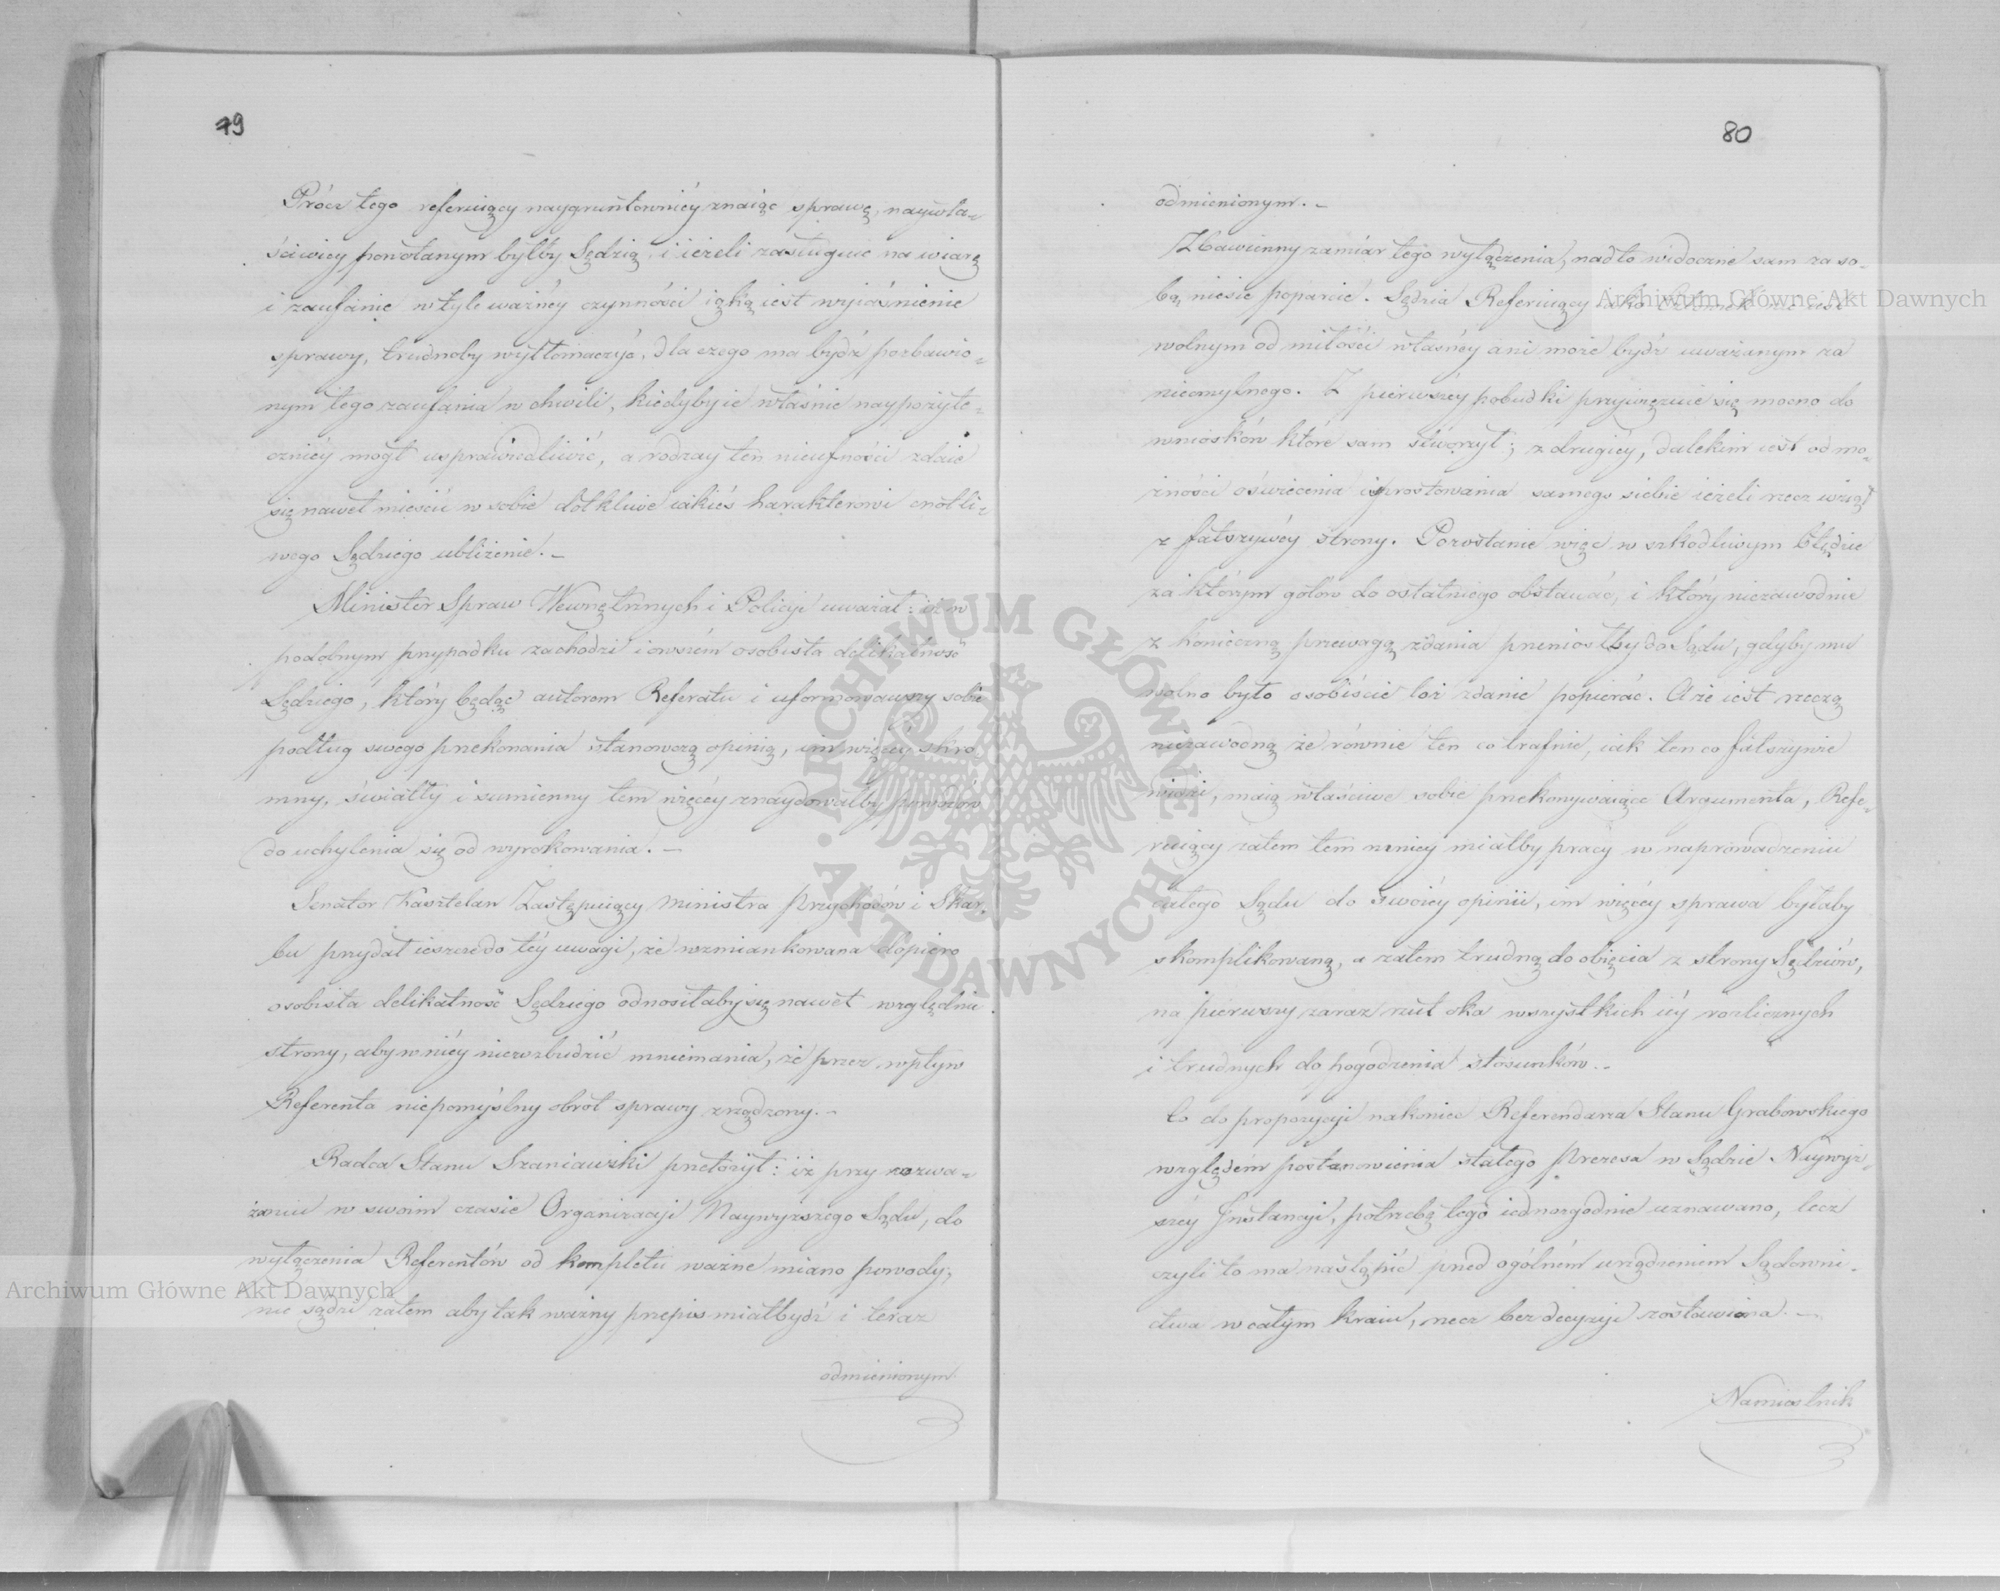 79
Prócz tego referuiący naygruntowniéy znaiąc sprawę, naywła-
ściwiey powołanym byłby Sędzią, i ieżeli zasługuie na wiarę
i zaufanie w tyle ważnéy czynności iąką iest wyiaśnienie
sprawy, trudnoby wytłomaczyć, dla czego ma bydź pozbawio-
nym tego zaufania w chwili, kiedyby ie właśnie naypożyte-
czniéy mógł usprawiedliwić, a rodzay ten nieufności zdaie
się nawet mieścić w sobie dotkliwe iakieś harakterowi cnotli-
wego Sędziego ubliżenie. –
Minister Spraw Wewnętrznych i Policyi uważał: iż w
podobnym przypadku zachodzi iowszém osobista delikatność
Sędziego, który będąc autorem Referatu i uformowawszy sobie
podług swego przekonania stanowczą opinią, im więcéy skro
mny, światły i sumienny tem więcéy znaydowałby powodów
do uchylenia się od wyrokowania. –
Senator Kasztelan Zastępuiący Ministra Przychodów i Skar-
bu przydał ieszcze do téy uwagi, że wzmiankowana dopiero
osobista delikatność Sędziego odnosiłaby się nawet względnie
strony, aby w niéy niewzbudzić mniemania, że przez wpływ
Referenta niepomyślny obrót sprawy zrządzony. –
Radca Stanu Szaniawski przełożył: iż przy rozwa-
żaniu w swoim czasie Organizacyi Naywyższego Sądu, do
wyłączenia Referentów od kompletu ważne miano powody;
nie sądzi zatem aby tak ważny przepis miał bydź i teraz
odmienionym
80
odmienionym. –
Zbawienny zamiar tego wyłączenia, nadto widocznie sam za so-
bą niesie poparcie. Sędzia Referuiący iako Człowiek nie iest
wolnym od miłości własnéy ani może bydź uważanym za
nieomylnego. Z pierwszéy pobudki przywięzuie się mocno do
wniosków które sam stworzył; z drugiéy, dalekim iest od mo-
żności oświecenia i prostowania samego siebie ieżeli rzecz wziął
z fałszywéy strony. Pozostanie więc w szkodliwym błędzie
za którym gotów do ostatniego obstawać, i który niezawodnie
z konieczną przewagą zdania przeniosłby do Sądu, gdyby mu
wolno było osobiście toż zdanie popierać. A że iest rzeczą
niezawodną że równie ten co trafnie, iak ten co fałszywie
widzi, maią właściwe sobie przekonywaiące Argumenta, Refe-
ruiący zatem tem mniéy miałby pracy w naprowadzeniu
całego Sądu do swoiéy opinii, im więcéy sprawa byłaby
skomplikowaną, a zatem trudną do obięcia z strony Sędziów,
na pierwszy zaraz rzut oka wszystkich iéy rozlicznych
i trudnych do pogodzenia stosunków. –
Co do propozycyi nakoniec Referendarza Stanu Grabowskiego
względem postanowienia stałego Prezesa w Sądzie Naywyż-
széy Instancyi, potrzebę tego iednozgodnie uznawano, lecz
czyli to ma nastąpić przed ogólném urządzeniem Sądowni-
ctwa w całym kraiu, rzecz bez decyzyi zostawiona. –
Namiestnik
Archiwum Główne Akt Dawnych
Archiwum Główne Akt Dawnych
ARCHIWUM GŁÓWNE
AKT DAWNYCH